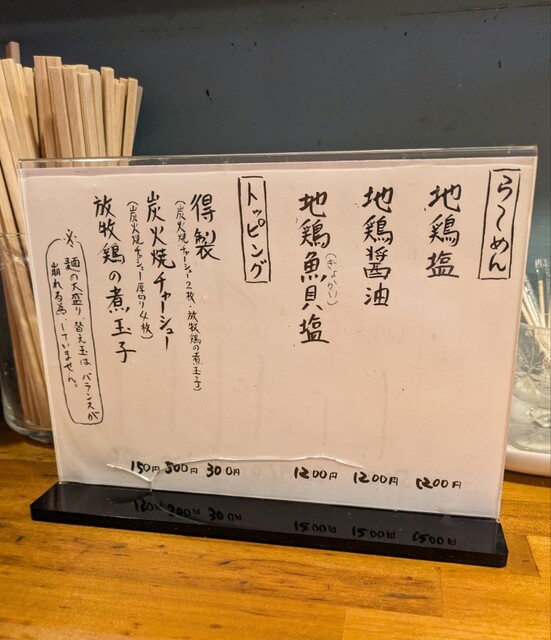 らーめん
地鶏塩 1200円
地鶏醤油 1200円
地鶏魚貝塩 1200円
(ぎょかい)
トッピング
得製 300円
(炭火焼チャーシュー2枚・放牧鶏の煮玉子)
炭火焼チャーシュー 500円
(炭火焼チャーシュー厚切り4枚)
放牧鶏の煮玉子 150円
※麺の大盛り、替え玉は バランスが
崩れる為、していません。